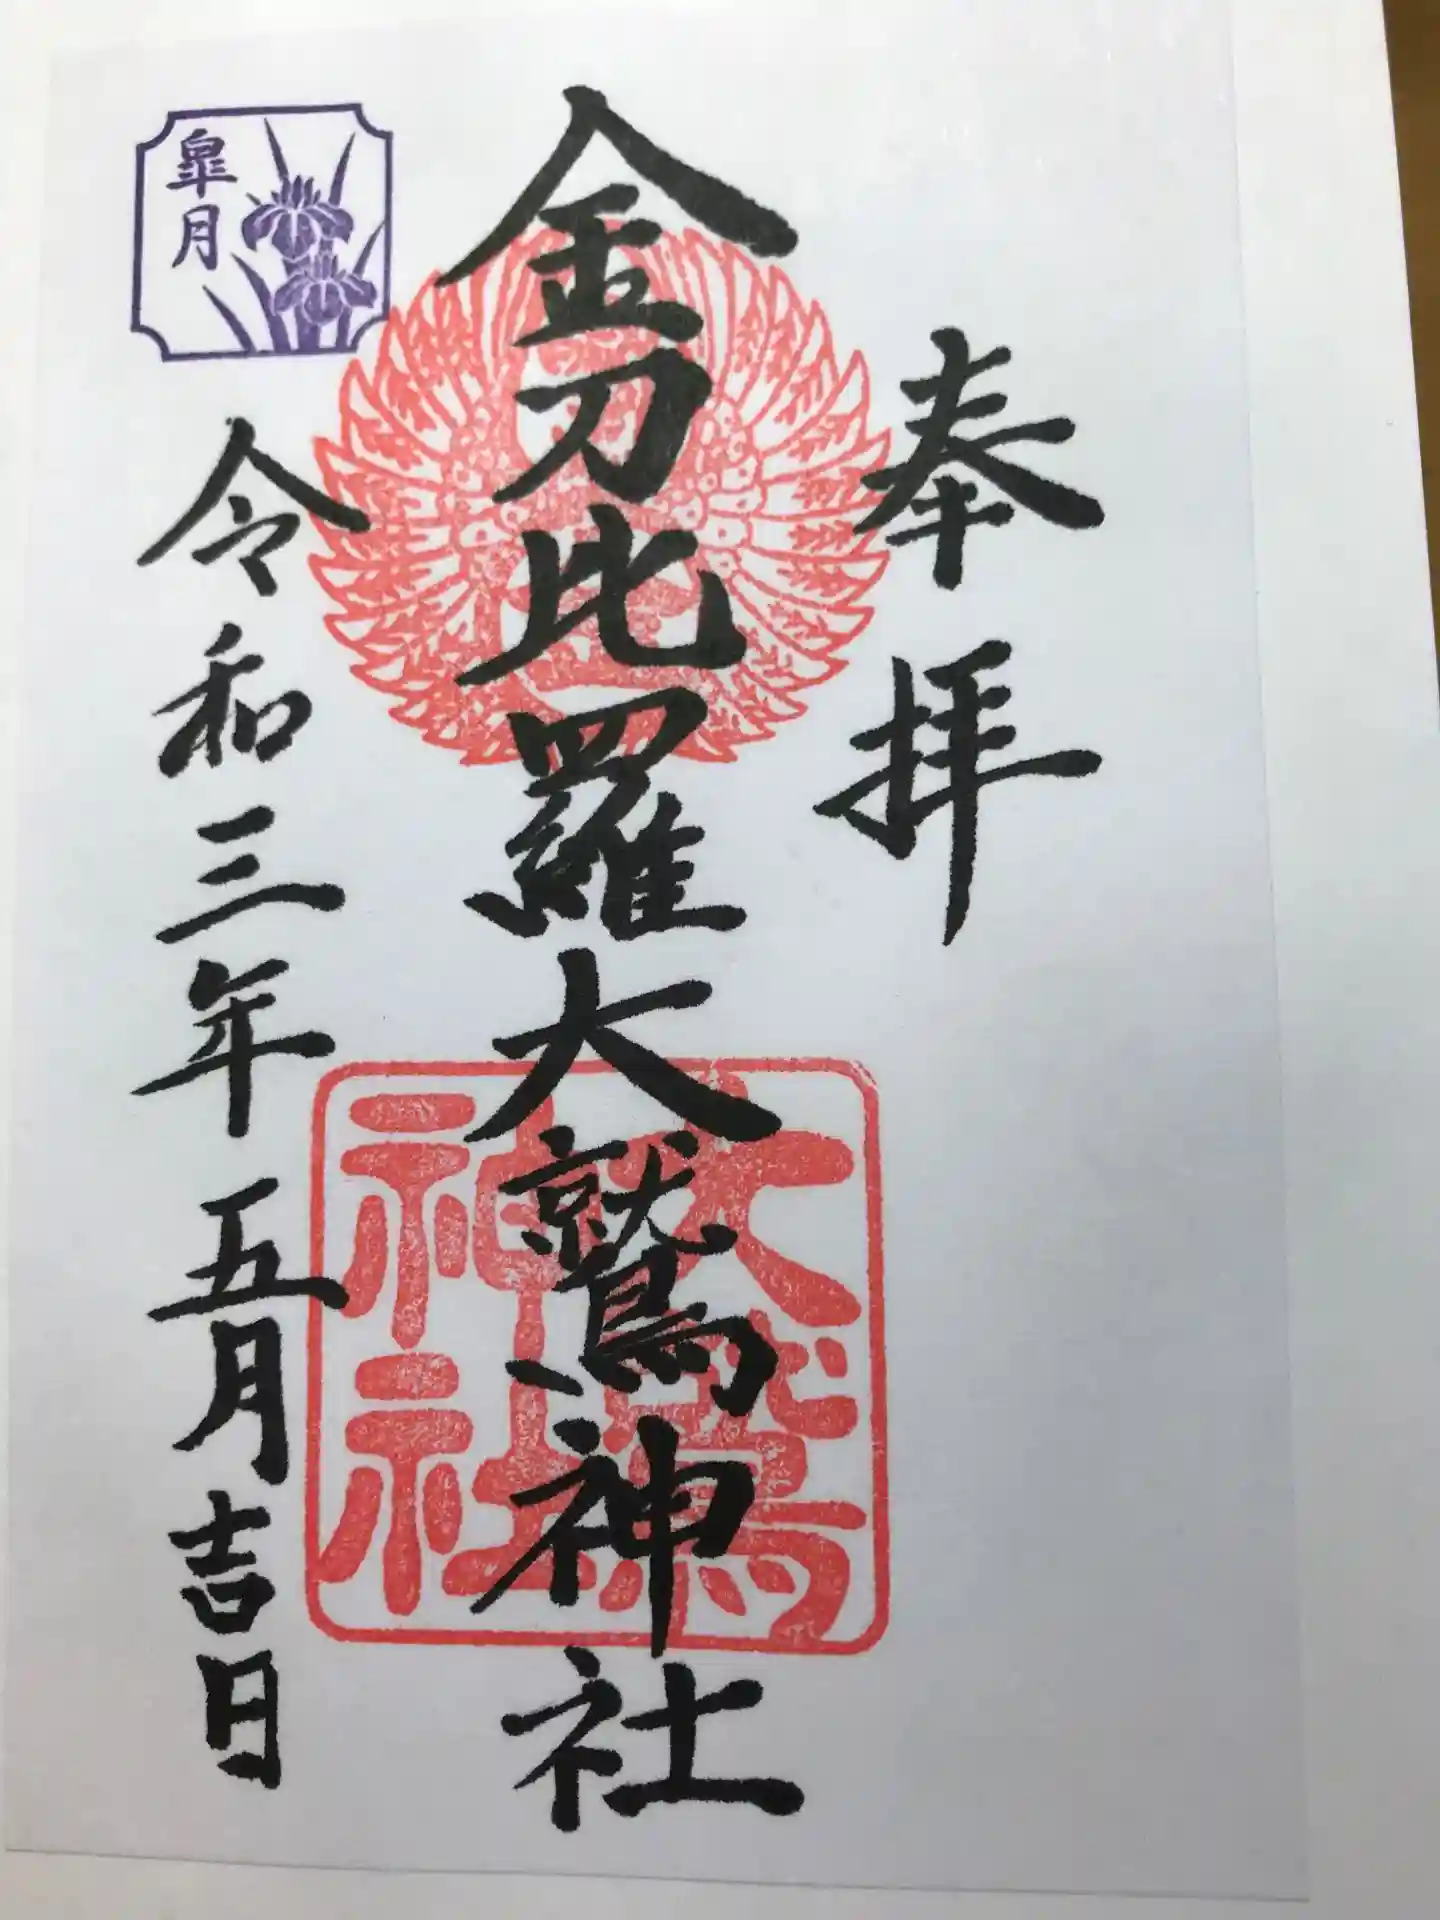 奉拝
金刀比羅大鷲神社
令和三年五月吉日
皐月
大鷲
神社